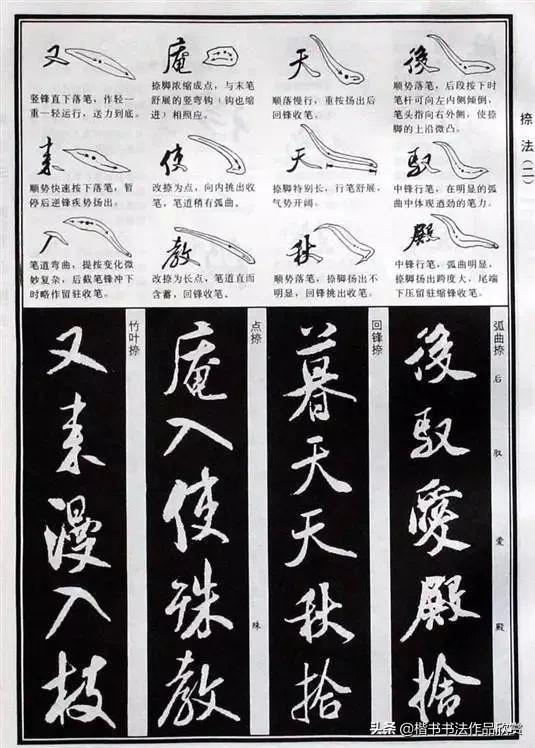 捺法(二)
後
顺势落笔，后段按下时
笔杆可向左内侧倾倒，
笔头指向右外侧，使捺
脚的上沿微凸。
馭
中锋行笔，在明显的弧
曲中体现遒劲的笔力。
殿
中锋行笔，弧曲明显，
捺脚扬出跨度大，尾端
下压留驻缩锋收笔。
天
顺落慢行，重按扬出后
回锋收笔。
天
捺脚特别长，行笔舒展，
气势开阔。
秋
顺势落笔，捺脚扬出不
明显，回锋挑出收笔。
庵
捺脚浓缩成点，与末笔
舒展的竖弯钩（钩也缩
进）相照应。
使
改捺为点，向内挑出收
笔，笔道稍有弧曲。
教
改捺为长点，笔道直而
含蓄，回锋收笔。
又
竖锋直下落笔，作轻一
重一轻运行，送力到底。
来
顺势快速按下落笔，暂
停后逆锋疾势扬出。
入
笔道弯曲，提按变化微
妙复杂，后截笔锋冲下
时略作留驻收笔。
弧曲捺
後馭愛殿捨
后
驭
爱
殿
回锋捺
暮天天秋拾
点捺
庵入使殊教
殊
竹叶捺
又来漫入枝
头条 @楷书书法作品欣赏